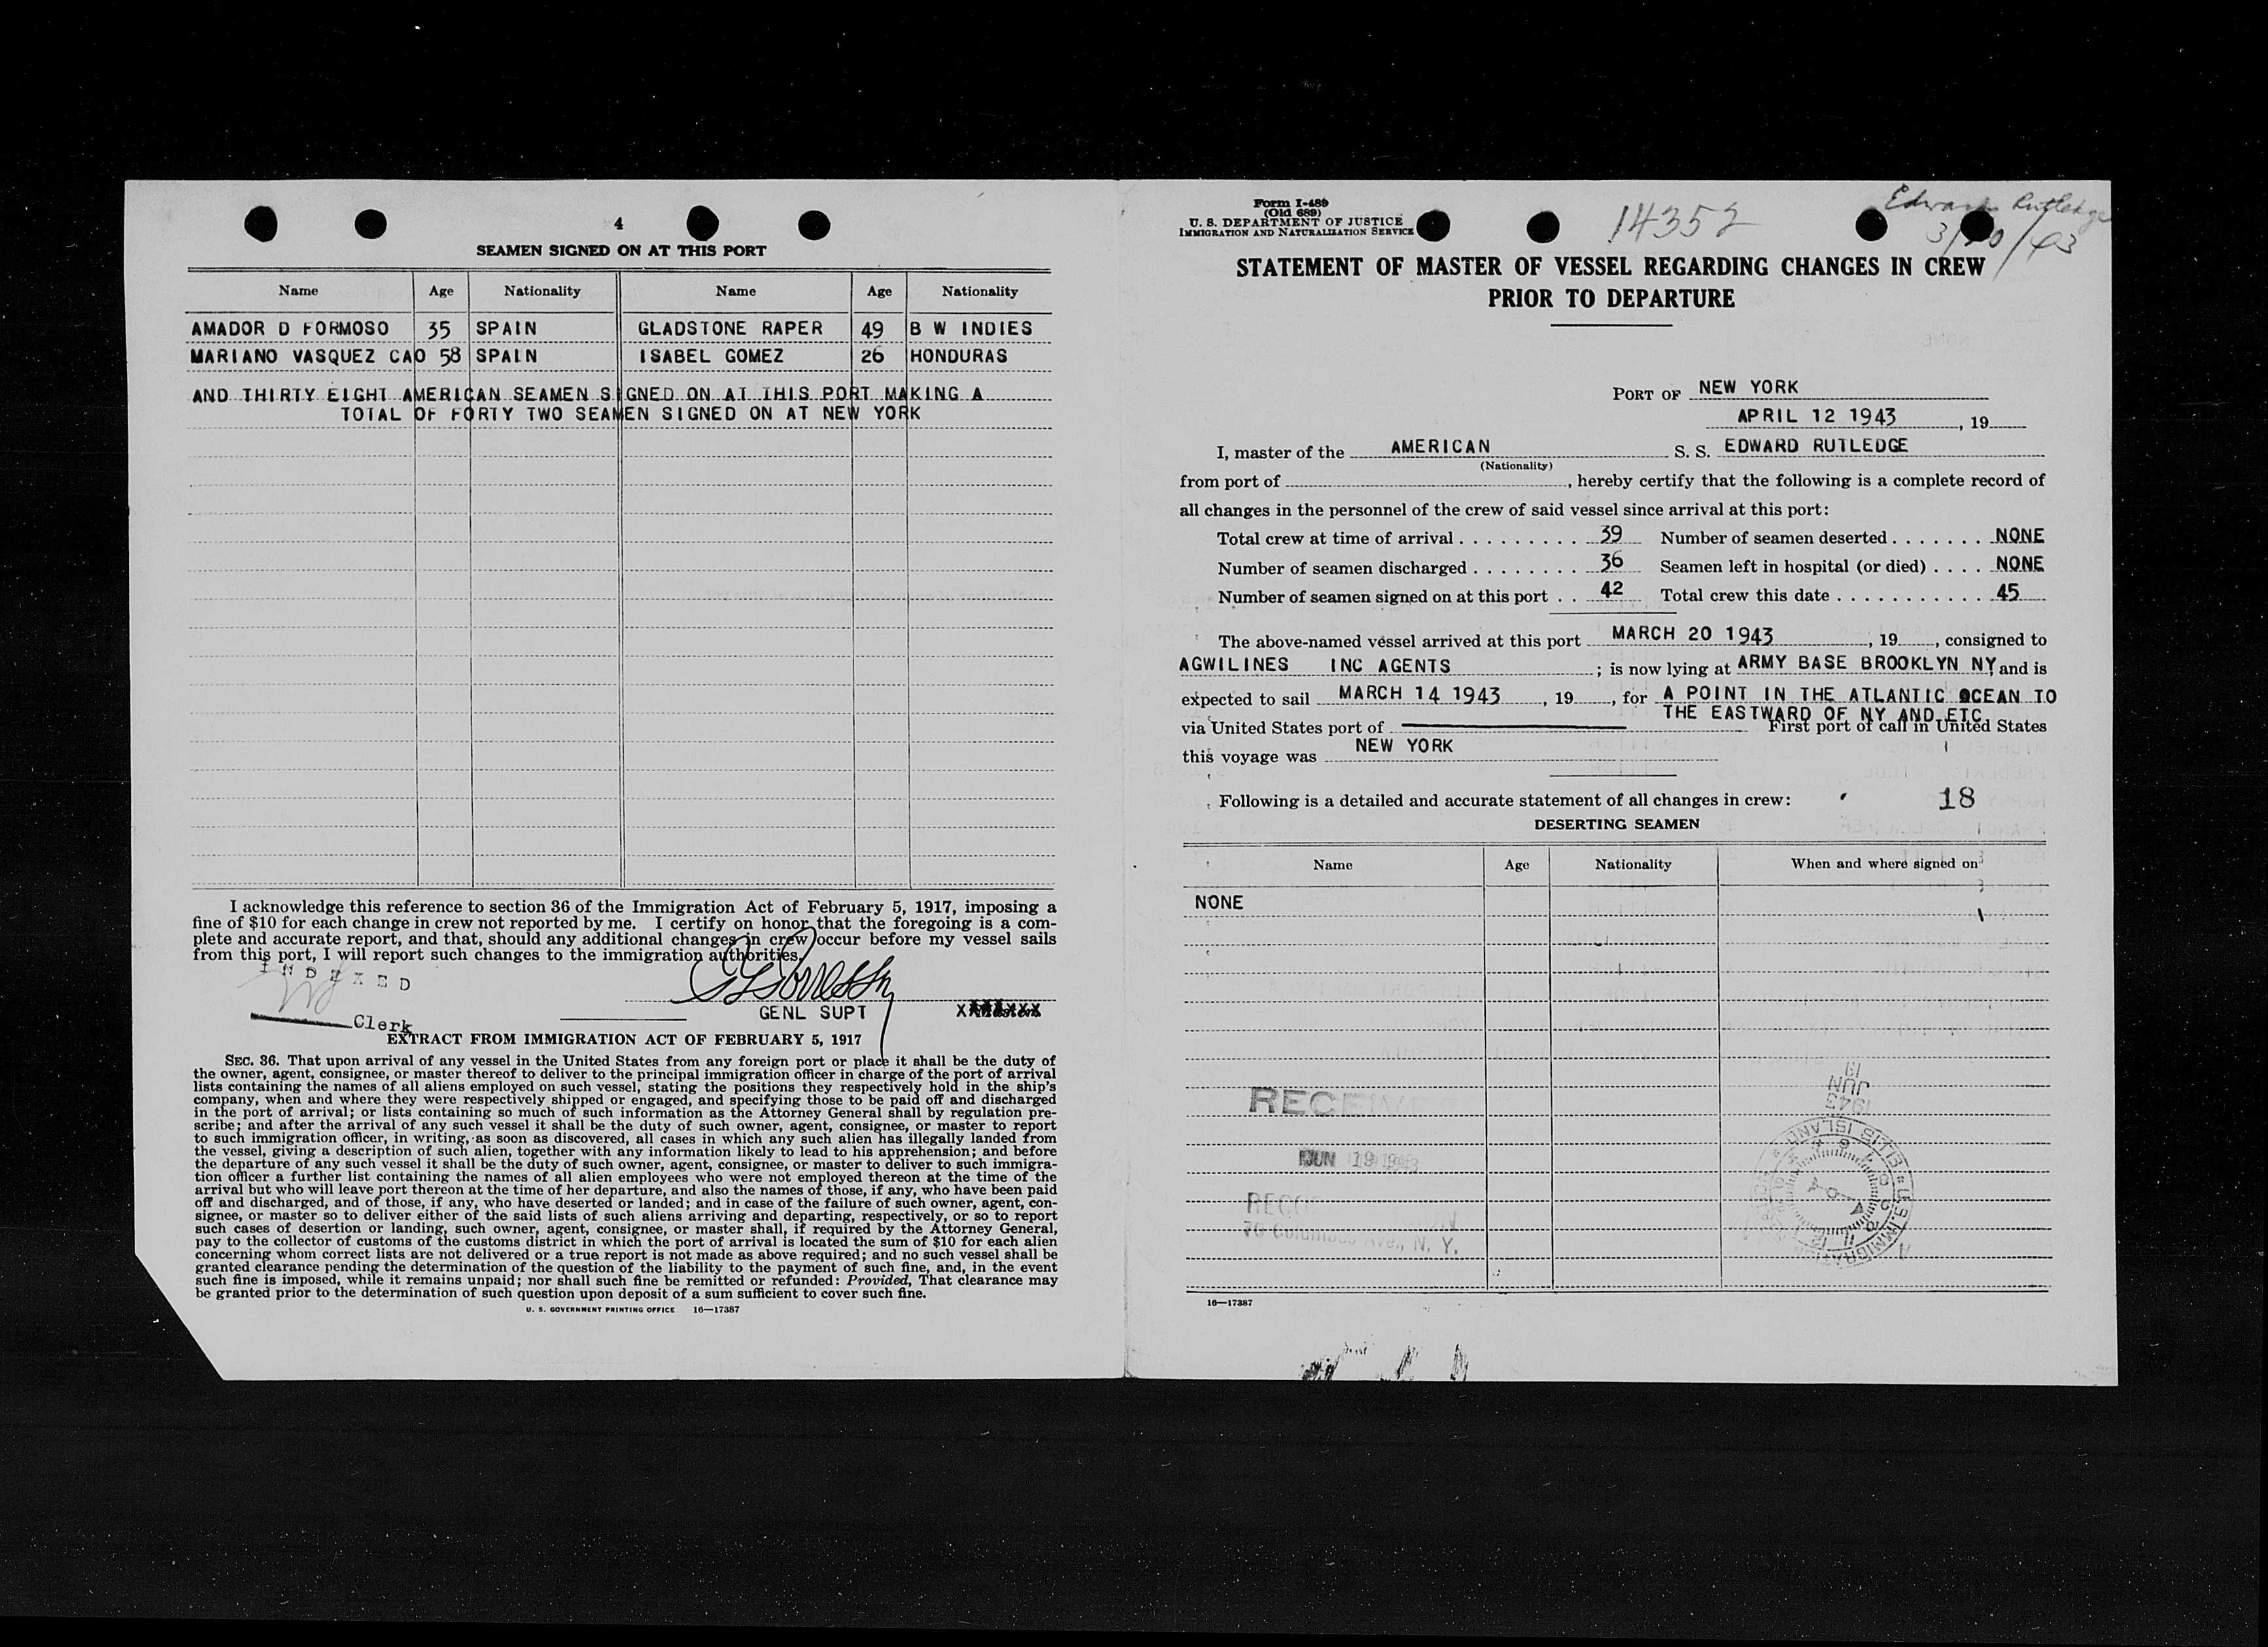 4
SEAMEN SIGNED ON AT THIS PORT
Name Age Nationality Name Age Nationality
AMADOR D FORMOSO 35 SPAIN GLADSTONE RAPER 49 B W INDIES
MARIANO VASQUEZ CAO 58 SPAIN ISABEL GOMEZ 26 HONDURAS
AND THIRTY EIGHT AMERICAN SEAMEN SIGNED ON AT THIS PORT MAKING A
TOTAL OF FORTY TWO SEAMEN SIGNED ON AT NEW YORK
I acknowledge this reference to section 36 of the Immigration Act of February 5, 1917, imposing a
fine of $10 for each change in crew not reported by me. I certify on honor that the foregoing is a com-
plete and accurate report, and that, should any additional changes in crew occur before my vessel sails
from this port, I will report such changes to the immigration authorities.
INDEXED
GENL SUPT
Clerk
EXTRACT FROM IMMIGRATION ACT OF FEBRUARY 5, 1917
SEC. 36. That upon arrival of any vessel in the United States from any foreign port or place it shall be the duty of
the owner, agent, consignee, or master thereof to deliver to the principal immigration officer in charge of the port of arrival
lists containing the names of all aliens employed on such vessel, stating the positions they respectively hold in the ship's
company, when and where they were respectively shipped or engaged, and specifying those to be paid off and discharged
in the port of arrival; or lists containing so much of such information as the Attorney General shall by regulation pre-
scribe; and after the arrival of any such vessel it shall be the duty of such owner, agent, consignee, or master to report
to such immigration officer, in writing, as soon as discovered, all cases in which any such alien has illegally landed from
the vessel, giving a description of such alien, together with any information likely to lead to his apprehension; and before
the departure of any such vessel it shall be the duty of such owner, agent, consignee, or master to deliver to such immigra-
tion officer a further list containing the names of all alien employees who were not employed thereon at the time of the
arrival but who will leave port thereon at the time of her departure, and also the names of those, if any, who have been paid
off and discharged, and of those, if any, who have deserted or landed; and in case of the failure of such owner, agent, con-
signee, or master so to deliver either of the said lists of such aliens arriving and departing, respectively, or so to report
such cases of desertion or landing, such owner, agent, consignee, or master shall, if required by the Attorney General,
pay to the collector of customs of the customs district in which the port of arrival is located the sum of $10 for each alien
concerning whom correct lists are not delivered or a true report is not made as above required; and no such vessel shall be
granted clearance pending the determination of the question of the liability to the payment of such fine, and, in the event
such fine is imposed, while it remains unpaid; nor shall such fine be remitted or refunded: Provided, That clearance may
be granted prior to the determination of such question upon deposit of a sum sufficient to cover such fine.
U. S. GOVERNMENT PRINTING OFFICE 16—17387
Form I-489
(Old 689)
U. S. DEPARTMENT OF JUSTICE
IMMIGRATION AND NATURALIZATION SERVICE
14352
Edward Rutledge
3/20/43
STATEMENT OF MASTER OF VESSEL REGARDING CHANGES IN CREW
PRIOR TO DEPARTURE
PORT OF NEW YORK
APRIL 12 1943, 19
I, master of the AMERICAN S. S. EDWARD RUTLEDGE
(Nationality)
from port of , hereby certify that the following is a complete record of
all changes in the personnel of the crew of said vessel since arrival at this port:
Total crew at time of arrival . . . . . . . . . 39 Number of seamen deserted . . . . . . . NONE
Number of seamen discharged . . . . . . . . 36 Seamen left in hospital (or died) . . . . NONE
Number of seamen signed on at this port . . 42 Total crew this date . . . . . . . . . . . . 45
The above-named vessel arrived at this port MARCH 20 1943, 19 , consigned to
AGWILINES INC AGENTS ; is now lying at ARMY BASE BROOKLYN NY and is
expected to sail MARCH 14 1943 , 19 , for A POINT IN THE ATLANTIC OCEAN TO
THE EASTWARD OF NY AND ETC
via United States port of First port of call in United States
this voyage was NEW YORK
Following is a detailed and accurate statement of all changes in crew: 18
DESERTING SEAMEN
Name Age Nationality When and where signed on
NONE
19
JUN
1943
RECEIVED
JUN 19 1943
70 Columbus Ave., N. Y.
U.S. IMMIGRATION
ELLIS ISLAND
16—17387